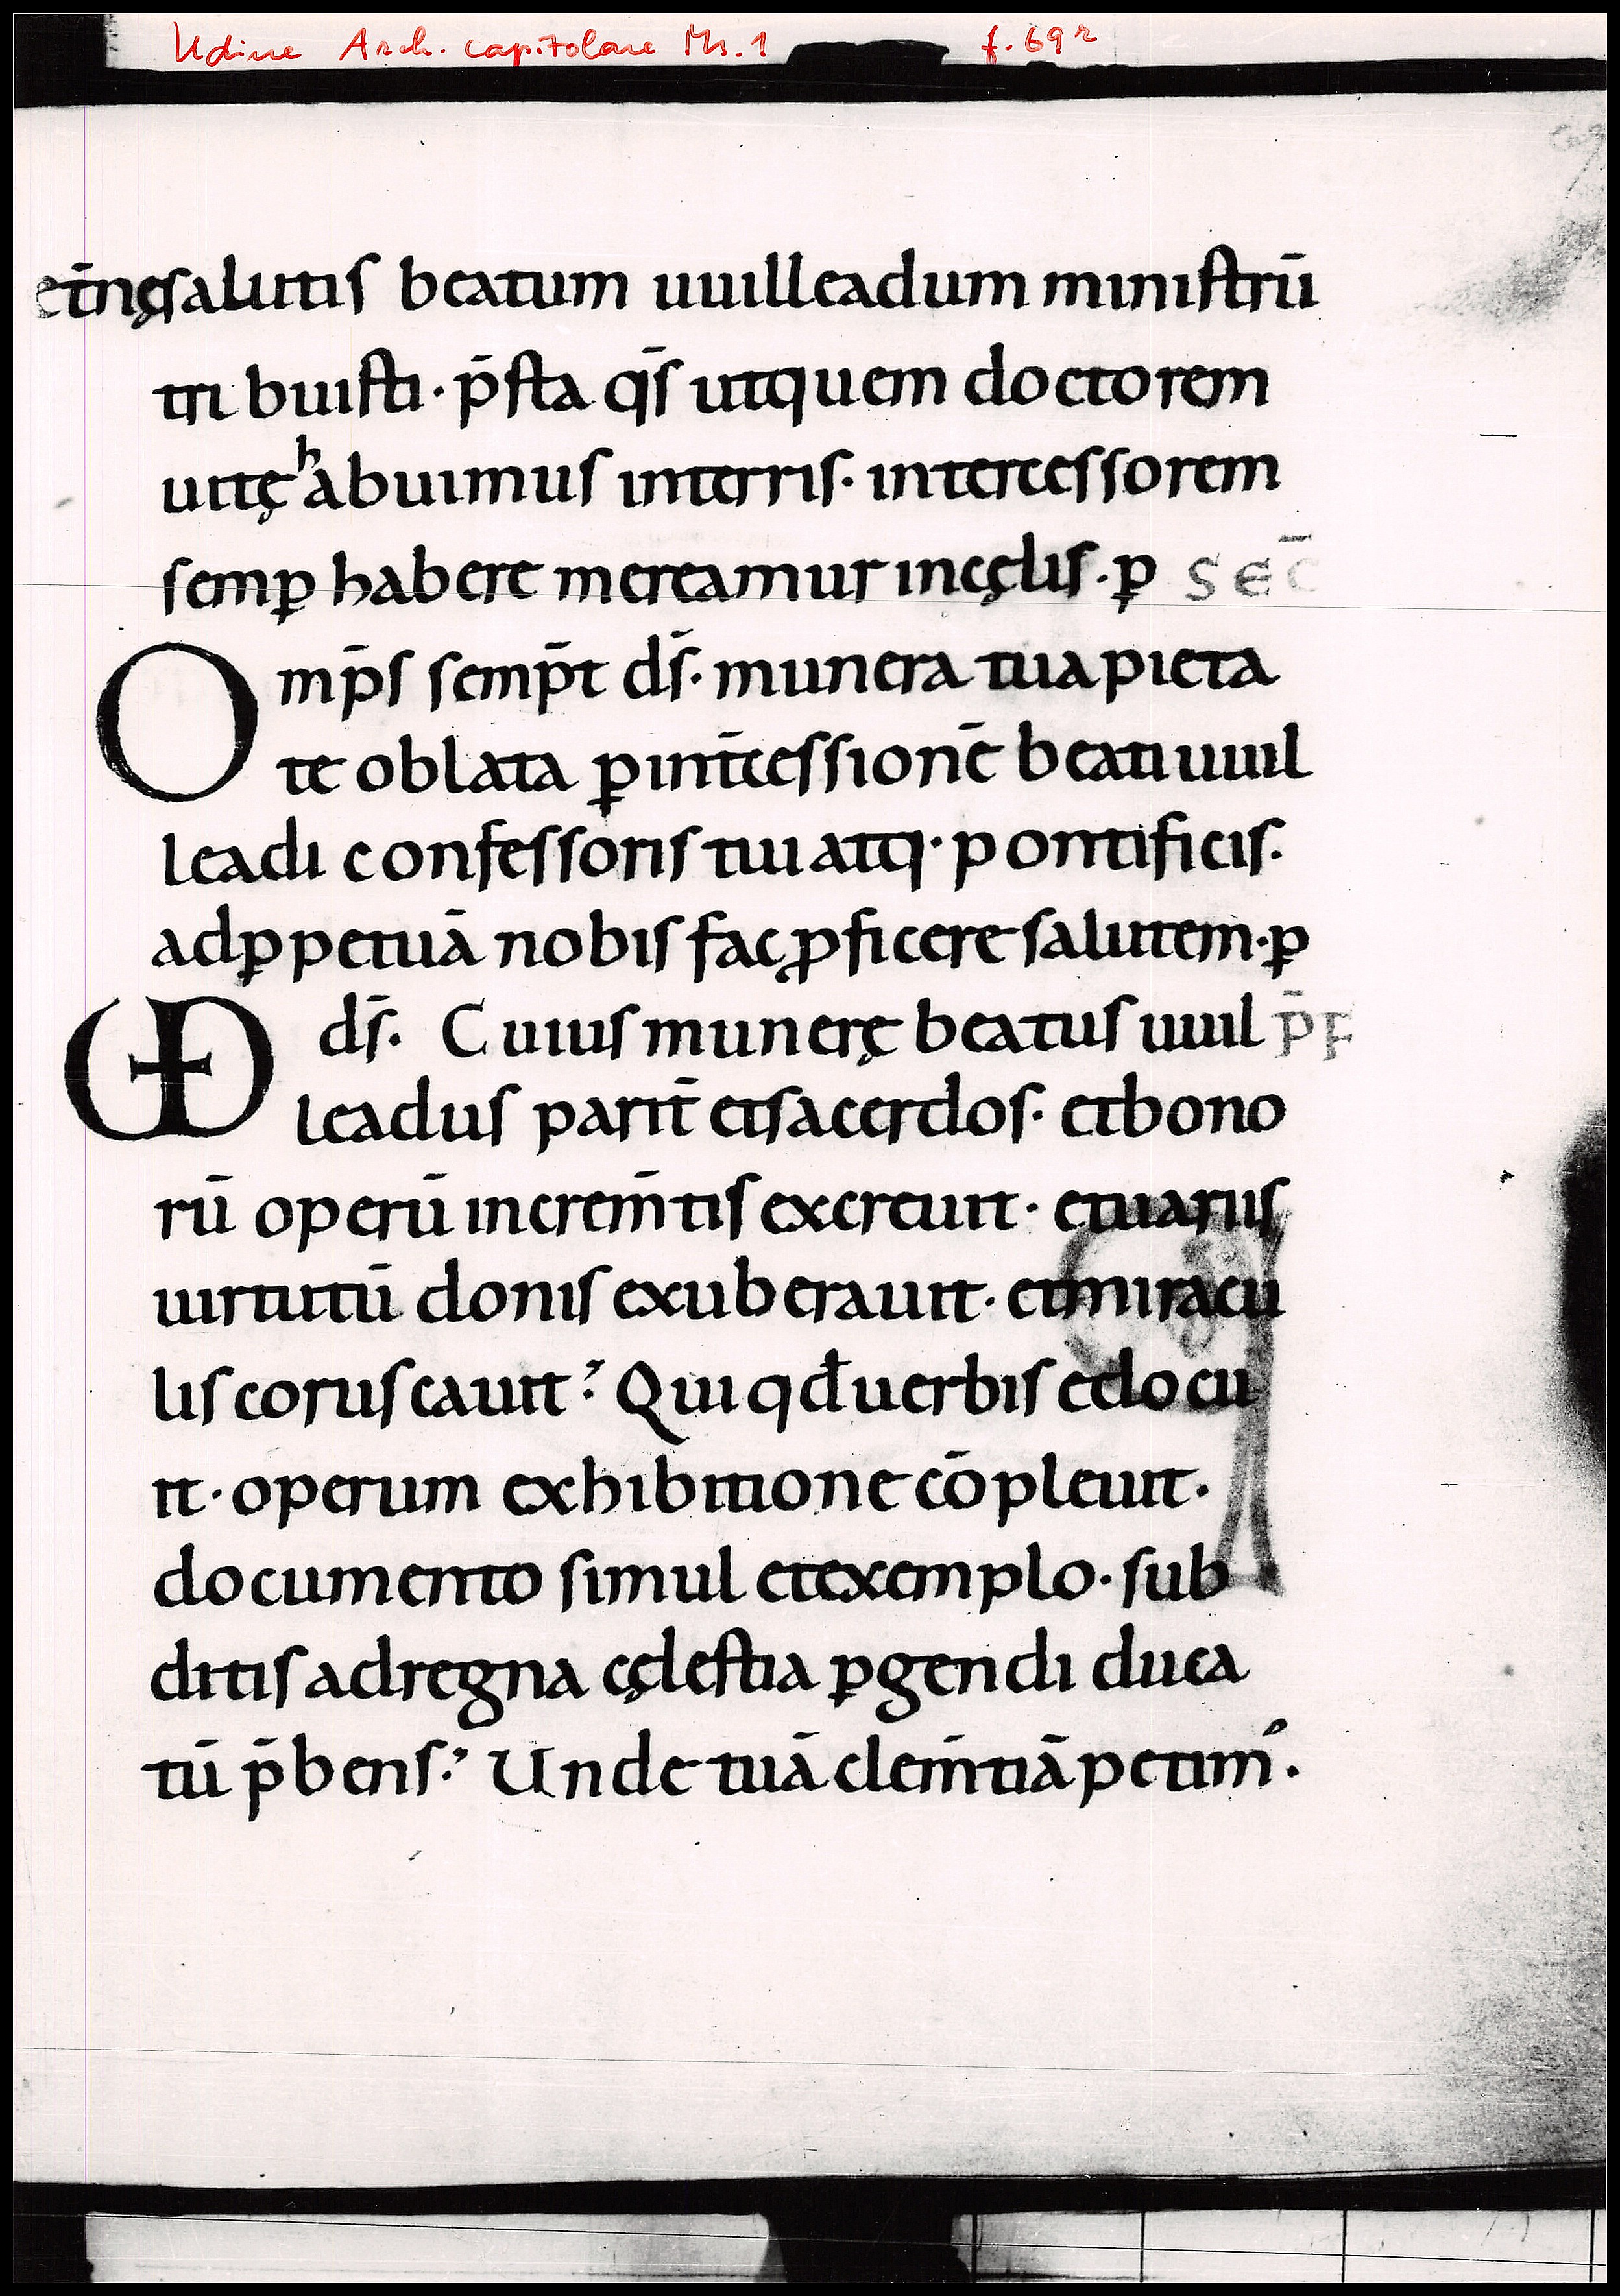 Udine Arch. capitolare Ms. 1 f. 69r
et̄nę salutis beatum uuilleadum ministrū
tribuisti· p̄sta q̄s ut quem doctorem
uitę habuimus in terris· intercessorem
semꝑ habere mereamur in cęlis·ꝑ SEC̄
Omp̄s semp̄t ds̄· munera tua pieta
te oblata ꝑ int̄cessionē beati uuil
leadi confessoris tui atq·pontificis·
ad ꝑpetuā nobis fac ꝓficere salutem·ꝑ
UD ds̄· Cuius munerę beatus uuil P̄F
leadus parit̄ et sacerdos· et bono
rū operū increm̄tis excreuit· et uariis
uirtutū donis exuberauit· et miracu
lis coruscauit; Qui qđ uerbis edocu
it· operum exhibitione cōpleuit·
documento simul et exemplo· sub
ditis ad regna cęlestia ꝑgendi duca
tū p̄bens; Unde tuā clem̄tiā petim᾽·